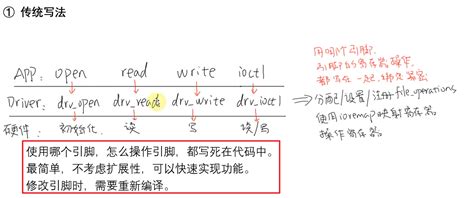 ① 传统写法
APP: open read write ioctl
Driver: drv_open drv_read drv_write drv_ioctl
硬件: 初始化 读 写 读/写
用哪个引脚,
引脚的寄存器操作,
都写在一起,
⇒ 分配/设置/注册 file_operations
使用 ioremap 映射寄存器
操作寄存器
使用哪个引脚，怎么操作引脚，都写死在代码中。
最简单，不考虑扩展性，可以快速实现功能。
修改引脚时，需要重新编译。